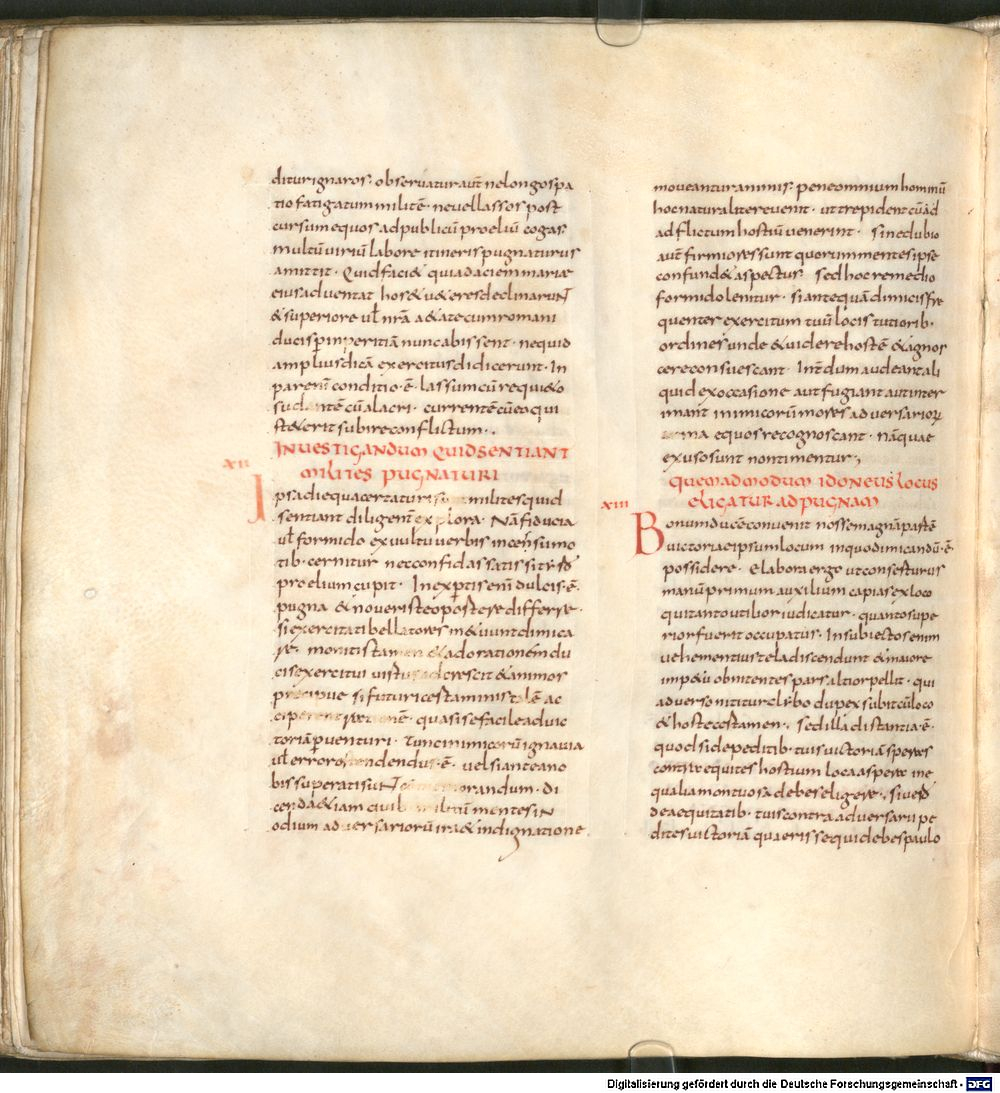 diturignaros · obseruatur aut̄ ne longo spa
tio fatigatum militē · neue lassos post
cursum equos ad publicū proeliū cogas
multū uiriū labore itineris pugnaturus
amittit · Quid faci& qui ad aciem marcidus
aduentat hoc & u&eres declinarunt
& superiore ul̄ nr̄a a&ate cum romani
duces ꝑ inperitiā nun cauissent · nequid
amplius dicā exercitus didicerunt · In
parenim̄ conditio ·ē· lassum cū requi&o
sudantē cū alacri · currentē cū eo qui
st&erit subire conflictum ·
xii INUESTIGANDUM QUID SENTIANT
MILITES PUGNATURI
Ipsa die qua certaturi su milites quid
sentiant diligent̄ explora · Nā fiducia
ul̄ formido ex uultu uerbis incessu mo
tib · cernitur nec confidas satis si tyr
proelium cupit · Inexꝑtis enī dulcis ·ē·
pugna & noueris te opostere differre ·
si exercitati bellatores m&uunt dimica
re · monitis tamen & adoratione du
cis exercitui uistus adcrescit & animos
precipue si futuri cestaminis talē ac
ceperint rationē · quasi se facile ad uic
toriā ꝑuenturi · Tunc inimicorū ignauia
ul̄ error ostendendus ·ē· uel si ante a no
bis superati sunt commemorandum · di
cenda &iam quib militū mentes in
odium aduersariorū ira & indignatione
moueantur animis : pene omnium hominū
hoc naturaliter euenit · ut trepident cū ad
adflictum hostiū uenerint · sine dubio
aut̄ firmiores sunt quorum mentes ipse
confund& aspectus sed hoc remedio
formido lenitur · si antequā dimices fre
quenter exercitum tuū locis tutiorib ·
ordines unde & uidere hostē & agnos
cere consuescant · Int̄dum audeant ali
quid ex occasione aut fugiant aut inter
imant inimicorū mores aduersarioꝝ
arma equos recognoscant · nā quae
ex uso sunt non timentur ,
xiii QUEMADMODUM IDONEUS LOCUS
ELIGATUR AD PUGNAM
Bonum ducē conuenit nosse magnā pastē
uictoriae ipsum locum in quo dimicandū ·ē
possidere · elabora ergo ut consesturus
manū primum auxilium capias ex loco
qui tanto utilior iudicatur · quanto supe
rior fuerit occupatus · In subiectos enim
uehementius tela discendunt & maiore
imp&u obnitentes pars altior pellit · qui
aduerso nititur clybo dupex subit cū loco
& hoste cestamen · sed illa distantia ·ē·
quod si de peditib · tuis uictoriā speres
contra equites hostium loca aspera ine
qualia montuosa debes eligere · si
de aequitatib · tuis contra aduersarii pe
dites uictoriā quaeris sequi debes paulo
Digitalisierung gefördert durch die Deutsche Forschungsgemeinschaft - DFG